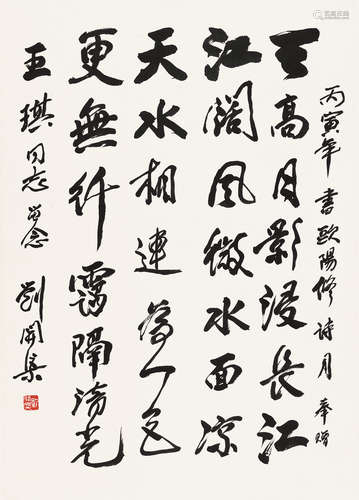 丙寅年書歐陽修诗月奉赠
天高月影浸長江
江闊風微水面涼
天水相連為一色
更無纤靄隔清光
王琪同志留念
劉開渠